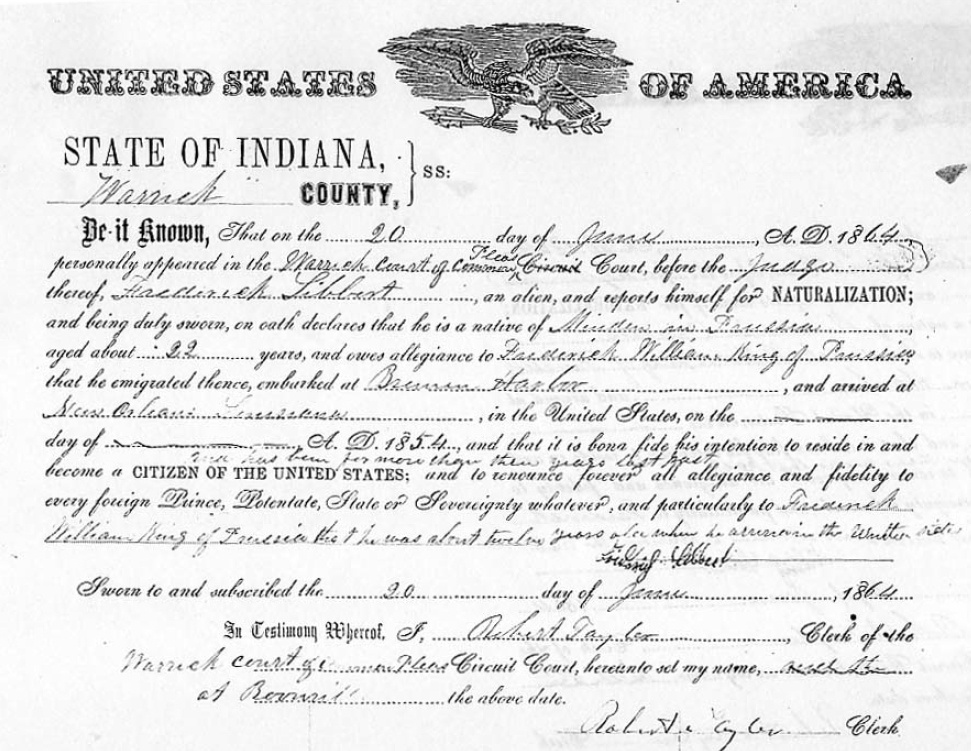 UNITED STATES OF AMERICA
STATE OF INDIANA,
Warrick COUNTY, } SS:
Be it Known, That on the 20 day of June, A. D. 1864
Pleas
personally appeared in the Warrick Court of Common Circuit Court, before the Judge
thereof, Frederick Libbert, an alien, and reports himself for NATURALIZATION;
and being duly sworn, on oath declares that he is a native of Minden in Prussia
aged about 22 years, and owes allegiance to Frederick William King of Prussia,
that he emigrated thence, embarked at Bremen Harbor, and arrived at
New Orleans Louisiana, in the United States, on the
day of , A. D. 1854, and that it is bona fide his intention to reside in and
has been for more than three years last past
become a CITIZEN OF THE UNITED STATES; and to renounce forever all allegiance and fidelity to
every foreign Prince, Potentate, State or Sovereignty whatever, and particularly to Friderick
William King of Prussia that he was about twelve years old when he arrived in the United States
Libbert
Sworn to and subscribed the 20 day of June, 1864
In Testimony Whereof, I, Robert Taylor, Clerk of the
Warrick court of Common Pleas Circuit Court, hereunto set my name,
at the above date.
Robert Taylor Clerk